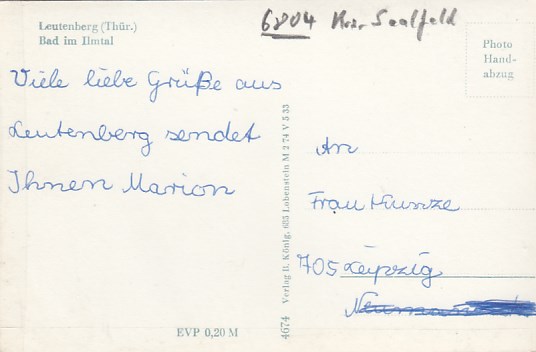 Leutenberg (Thür.)
Bad im Ilmtal
6804 Krs. Saalfeld
Photo
Hand-
abzug
Viele liebe Grüße aus
Leutenberg sendet
Ihnen Marion
An
Frau
705 Leipzig
Verlag B. König, 685 Lobenstein M 2 74 V 5 33
4674
EVP 0,20 M